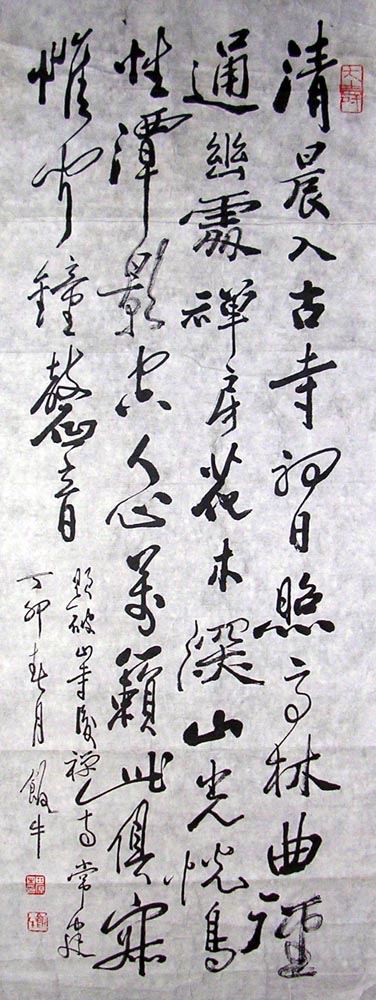 清晨入古寺初日照高林曲徑
通幽處禪房花木深山光悅鳥
性潭影空人心萬籟此俱寂
惟聞鐘磬音
題破山寺後禪 常建
丁卯春月 飯牛